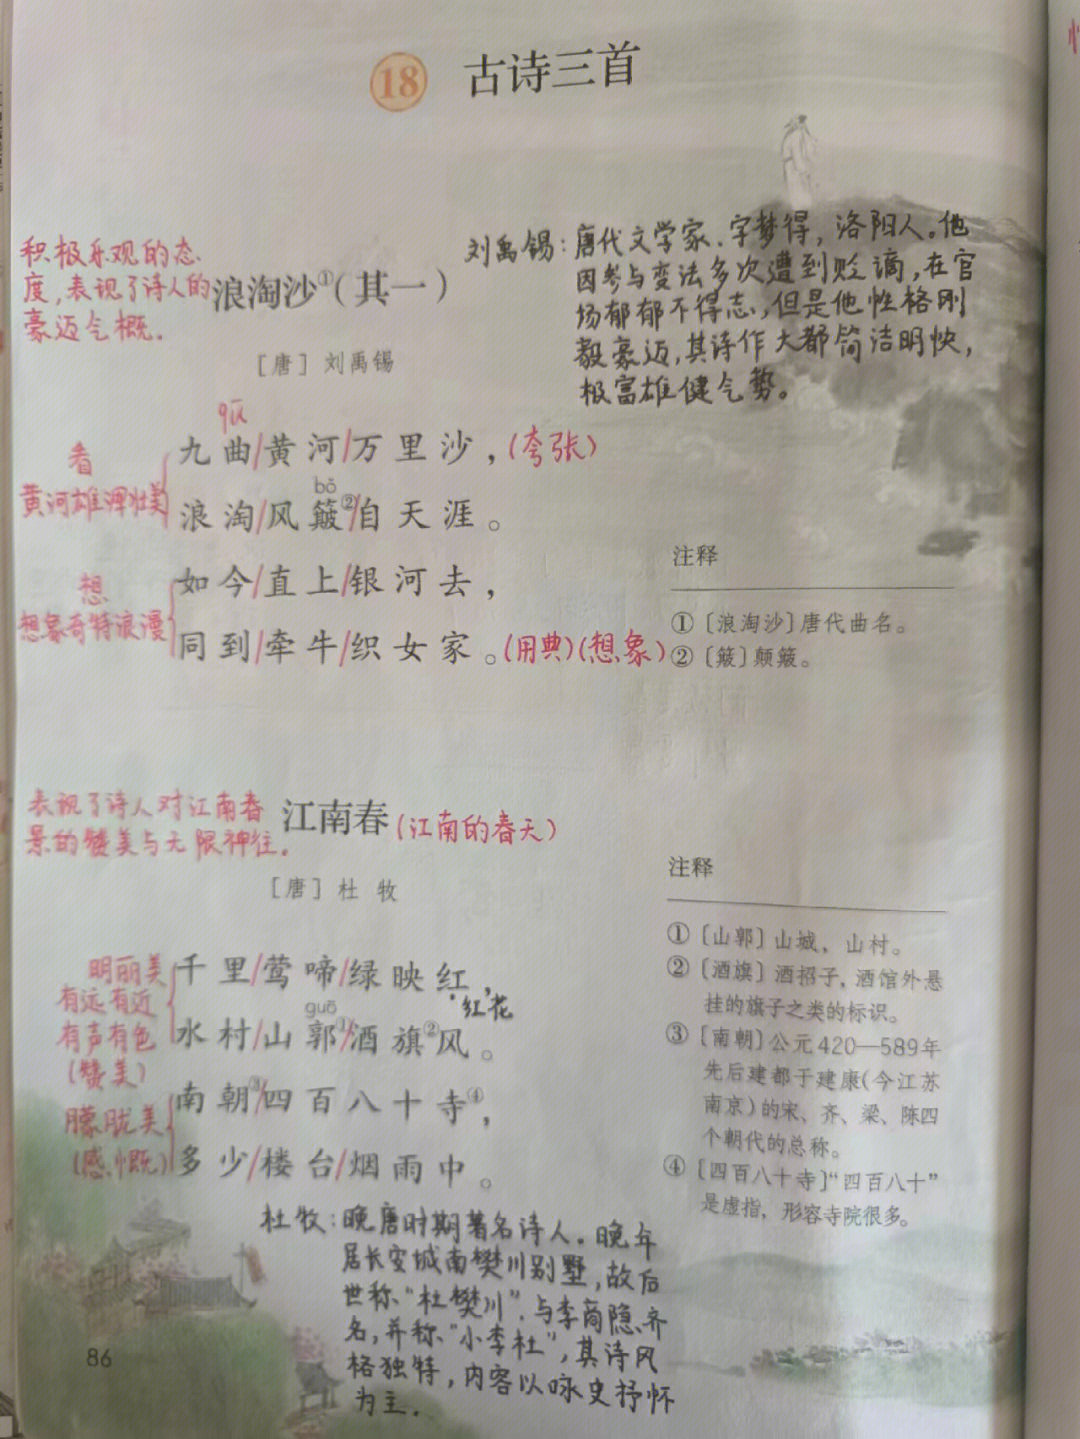 18 古诗三首
积极乐观的态
度,表现了诗人的
豪迈气概.
浪淘沙①(其一)
[唐] 刘禹锡
刘禹锡:唐代文学家.字梦得,洛阳人。他
因参与变法多次遭到贬谪,在官
场郁郁不得志,但是他性格刚
毅豪迈,其诗作大都简洁明快,
极富雄健气势。
qū
九曲/黄河/万里沙,(夸张)
bǒ
浪淘/风簸②/自天涯。
看
黄河雄浑壮美
如今/直上/银河去,
同到/牵牛/织女家。(用典)(想象)
想
想象奇特浪漫
注释
①〔浪淘沙〕唐代曲名。
②〔簸〕颠簸。
表现了诗人对江南春
景的赞美与无限神往.
江南春(江南的春天)
[唐] 杜 牧
千里/莺啼/绿映红,
红花
guō
水村/山郭①/酒旗②风。
明丽美
有远有近
有声有色
(赞美)
南朝③/四百八十寺④,
多少/楼台/烟雨中。
朦胧美
(感慨)
注释
①〔山郭〕山城,山村。
②〔酒旗〕酒招子,酒馆外悬
挂的旗子之类的标识。
③〔南朝〕公元420—589年
先后建都于建康(今江苏
南京)的宋、齐、梁、陈四
个朝代的总称。
④〔四百八十寺〕“四百八十”
是虚指,形容寺院很多。
杜牧:晚唐时期著名诗人.晚年
居长安城南樊川别墅,故后
世称“杜樊川”.与李商隐齐
名,并称“小李杜”,其诗风
格独特,内容以咏史抒怀
为主.
86